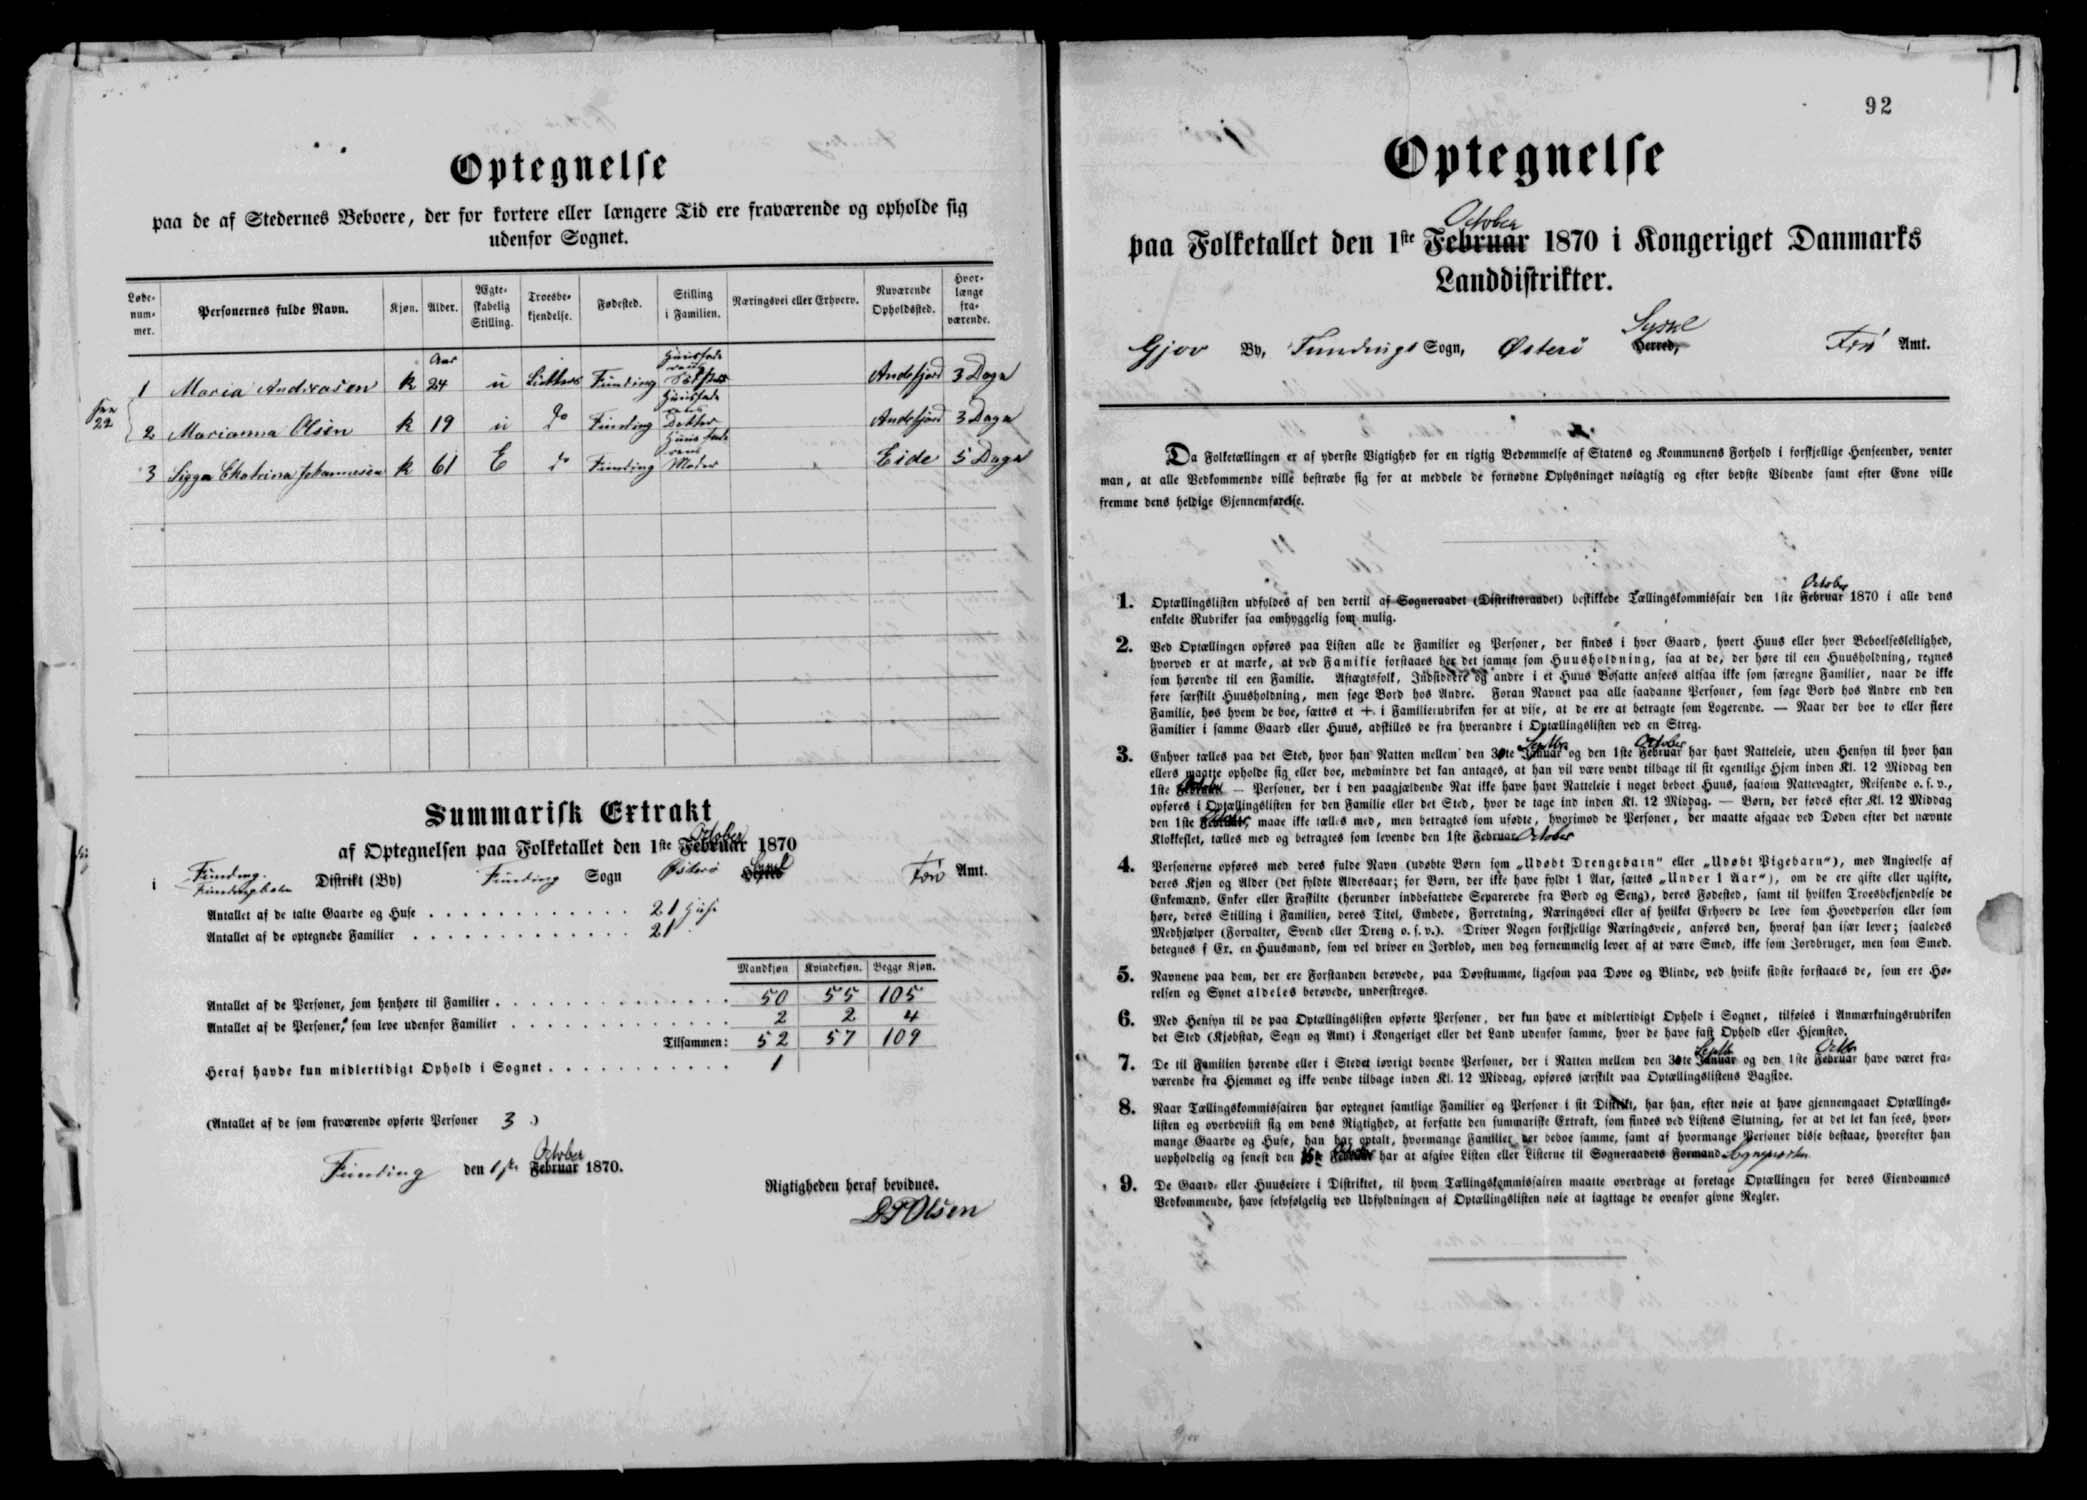 Optegnelse
paa de af Stedernes Beboere, der for kortere eller længere Tid ere fraværende og opholde sig
udenfor Sognet.
Løbe-
num-
mer.
Personernes fulde Navn.
Kjøn.
Alder.
Ægte-
skabelig
Stilling.
Troesbe-
kjendelse.
Fødested.
Stilling
i Familien.
Næringsvei eller Erhverv.
Nuværende
Opholdssted.
Hvor-
længe
fra-
værende.
1 Maria Andreasen K Aar 24 u Funding Andefjord 3 Dage
2 Marianna Olsen K 19 u do Funding Huusfaderens Datter Andefjord 3 Dage
3 Sigga Chatrina Johannesen K 61 E do Funding Huusfaderens Moder Eide 5 Dage
22
Summarisk Extrakt
af Optegnelsen paa Folketallet den 1ste Februar October 1870
i Funding Distrikt (By) Funding Sogn Østerø Syssel Færø Amt.
Antallet af de talte Gaarde og Huse 21 Huse
Antallet af de optegnede Familier 21
Mandkjøn Kvindekjøn. Begge Kjøn.
Antallet af de Personer, som henhøre til Familier 50 55 105
Antallet af de Personer, som leve udenfor Familier 2 2 4
Tilsammen: 52 57 109
Heraf havde kun midlertidigt Ophold i Sognet 1
(Antallet af de som fraværende opførte Personer 3 )
Funding den 1ste Februar October 1870.
Rigtigheden heraf bevidnes.
D P Olsen
92
Optegnelse
October
paa Folketallet den 1ste Februar 1870 i Kongeriget Danmarks
Landdistrikter.
Gjov By, Fundings Sogn, Østerø Syssel Herred, Færø Amt.
Da Folketællingen er af yderste Vigtighed for en rigtig Bedømmelse af Statens og Kommunens Forhold i forskjellige Henseender, venter
man, at alle Vedkommende ville bestræbe sig for at meddele de fornødne Oplysninger nøiagtig og efter bedste Vidende samt efter Evne ville
fremme dens heldige Gjennemførelse.
1. Optællingslisten udfyldes af den dertil af Sogneraadet (Distriktsraadet) beskikkede Tællingskommissair den 1ste Februar October 1870 i alle dens
enkelte Rubriker saa omhyggelig som mulig.
2. Ved Optællingen opføres paa Listen alle de Familier og Personer, der findes i hver Gaard, hvert Huus eller hver Beboelsesleilighed,
hvorved er at mærke, at ved Familie forstaaes her det samme som Huusholdning, saa at de, der høre til een Huusholdning, regnes
som hørende til een Familie. Aftægtsfolk, Indsiddere og andre i et Huus Bosatte ansees altsaa ikke som særegne Familier, naar de ikke
føre særskilt Huusholdning, men søge Bord hos Andre. Foran Navnet paa alle saadanne Personer, som søge Bord hos Andre end den
Familie, hos hvem de boe, sættes et + i Familierubriken for at vise, at de ere at betragte som Logerende. — Naar der boe to eller flere
Familier i samme Gaard eller Huus, adskilles de fra hverandre i Optællingslisten ved en Streg.
3. Enhver tælles paa det Sted, hvor han Natten mellem den 30te Januar Septbr og den 1ste Februar October har havt Natteleie, uden Hensyn til hvor han
ellers maatte opholde sig eller boe, medmindre det kan antages, at han vil være vendt tilbage til sit egentlige Hjem inden Kl. 12 Middag den
1ste Februar October — Personer, der i den paagjældende Nat ikke have havt Natteleie i noget beboet Huus, saasom Nattevagter, Reisende o. s. v.,
opføres i Optællingslisten for den Familie eller det Sted, hvor de tage ind inden Kl. 12 Middag. — Børn, der fødes efter Kl. 12 Middag
den 1ste Februar October, maae ikke tælles med, men betragtes som ufødte, hvorimod de Personer, der maatte afgaae ved Døden efter det nævnte
Klokkeslet, tælles med og betragtes som levende den 1ste Februar October
4. Personerne opføres med deres fulde Navn (udøbte Børn som „Udøbt Drengebarn“ eller „Udøbt Pigebarn“), med Angivelse af
deres Kjøn og Alder (det fyldte Aldersaar; for Børn, der ikke have fyldt 1 Aar, sættes „Under 1 Aar“), om de ere gifte eller ugifte,
Enkemænd, Enker eller Fraskilte (herunder indbefattede Separerede fra Bord og Seng), deres Fødested, samt til hvilken Troesbekjendelse de
høre, deres Stilling i Familien, deres Titel, Embede, Forretning, Næringsvei eller af hvilket Erhverv de leve som Hovedperson eller som
Medhjælper (Forvalter, Svend eller Dreng o. s. v.). Driver Nogen forskjellige Næringsveie, anføres den, hvoraf han især lever; saaledes
betegnes f Ex. en Huusmand, som vel driver en Jordlod, men dog fornemmelig lever af at være Smed, ikke som Jordbruger, men som Smed.
5. Navnene paa dem, der ere Forstanden berøvede, paa Døvstumme, ligesom paa Døve og Blinde, ved hvilke sidste forstaaes de, som ere Hø-
relsen og Synet aldeles berøvede, understreges.
6. Med Hensyn til de paa Optællingslisten opførte Personer, der kun have et midlertidigt Ophold i Sognet, tilføies i Anmærkningsrubriken
det Sted (Kjøbstad, Sogn og Amt) i Kongeriget eller det Land udenfor samme, hvor de have fast Ophold eller Hjemsted.
7. De til Familien hørende eller i Stedet iøvrigt boende Personer, der i Natten mellem den 30te Januar Septbr og den 1ste Februar Octbr have været fra-
værende fra Hjemmet og ikke vende tilbage inden Kl. 12 Middag, opføres særskilt paa Optællingslistens Bagside.
8. Naar Tællingskommissairen har optegnet samtlige Familier og Personer i sit Distrikt, har han, efter nøie at have gjennemgaaet Optællings-
listen og overbeviist sig om dens Rigtighed, at forfatte den summariske Extrakt, som findes ved Listens Slutning, for at det let kan sees, hvor-
mange Gaarde og Huse, han har optalt, hvormange Familier der beboe samme, samt af hvormange Personer disse bestaae, hvorefter han
uopholdelig og senest den Februar har at afgive Listen eller Listerne til Sogneraadets Formand Sognepræsten
9. De Gaard- eller Huuseiere i Distriktet, til hvem Tællingskommissairen maatte overdrage at foretage Optællingen for deres Eiendommes
Vedkommende, have selvfølgelig ved Udfyldningen af Optællingslisten nøie at iagttage de ovenfor givne Regler.